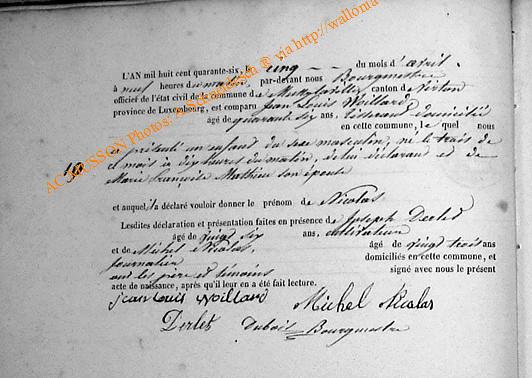 L'AN mil huit cent quarante-six, le cinq du mois d'avril
à neuf heures du matin, par-devant nous Bourgmestre
officier de l'état civil de la commune de canton de Virton
province de Luxembourg, est comparu Jean Louis Woillard
âgé de quarante six ans, domicilié
en cette commune, lequel nous
a présenté un enfant du sexe masculin, né le trois de
ce mois à dix heures du matin, de lui déclarant et de
Marie Françoise Mathieu son épouse
10
et auquel il a déclaré vouloir donner le prénom de Nicolas
Lesdites déclaration et présentation faites en présence de Joseph Derlet
âgé de vingt six ans, cultivateur
et de Michel Nicolas âgé de vingt trois ans
journalier domiciliés en cette commune, et
ont les père et témoins signé avec nous le présent
acte de naissance, après qu'il leur en a été fait lecture.
Jean Louis Woillard Michel Nicolas
Derlet Dubois Bourgmestre
AC MUSSON Photos: A. Strasbach @ via http://wallonia